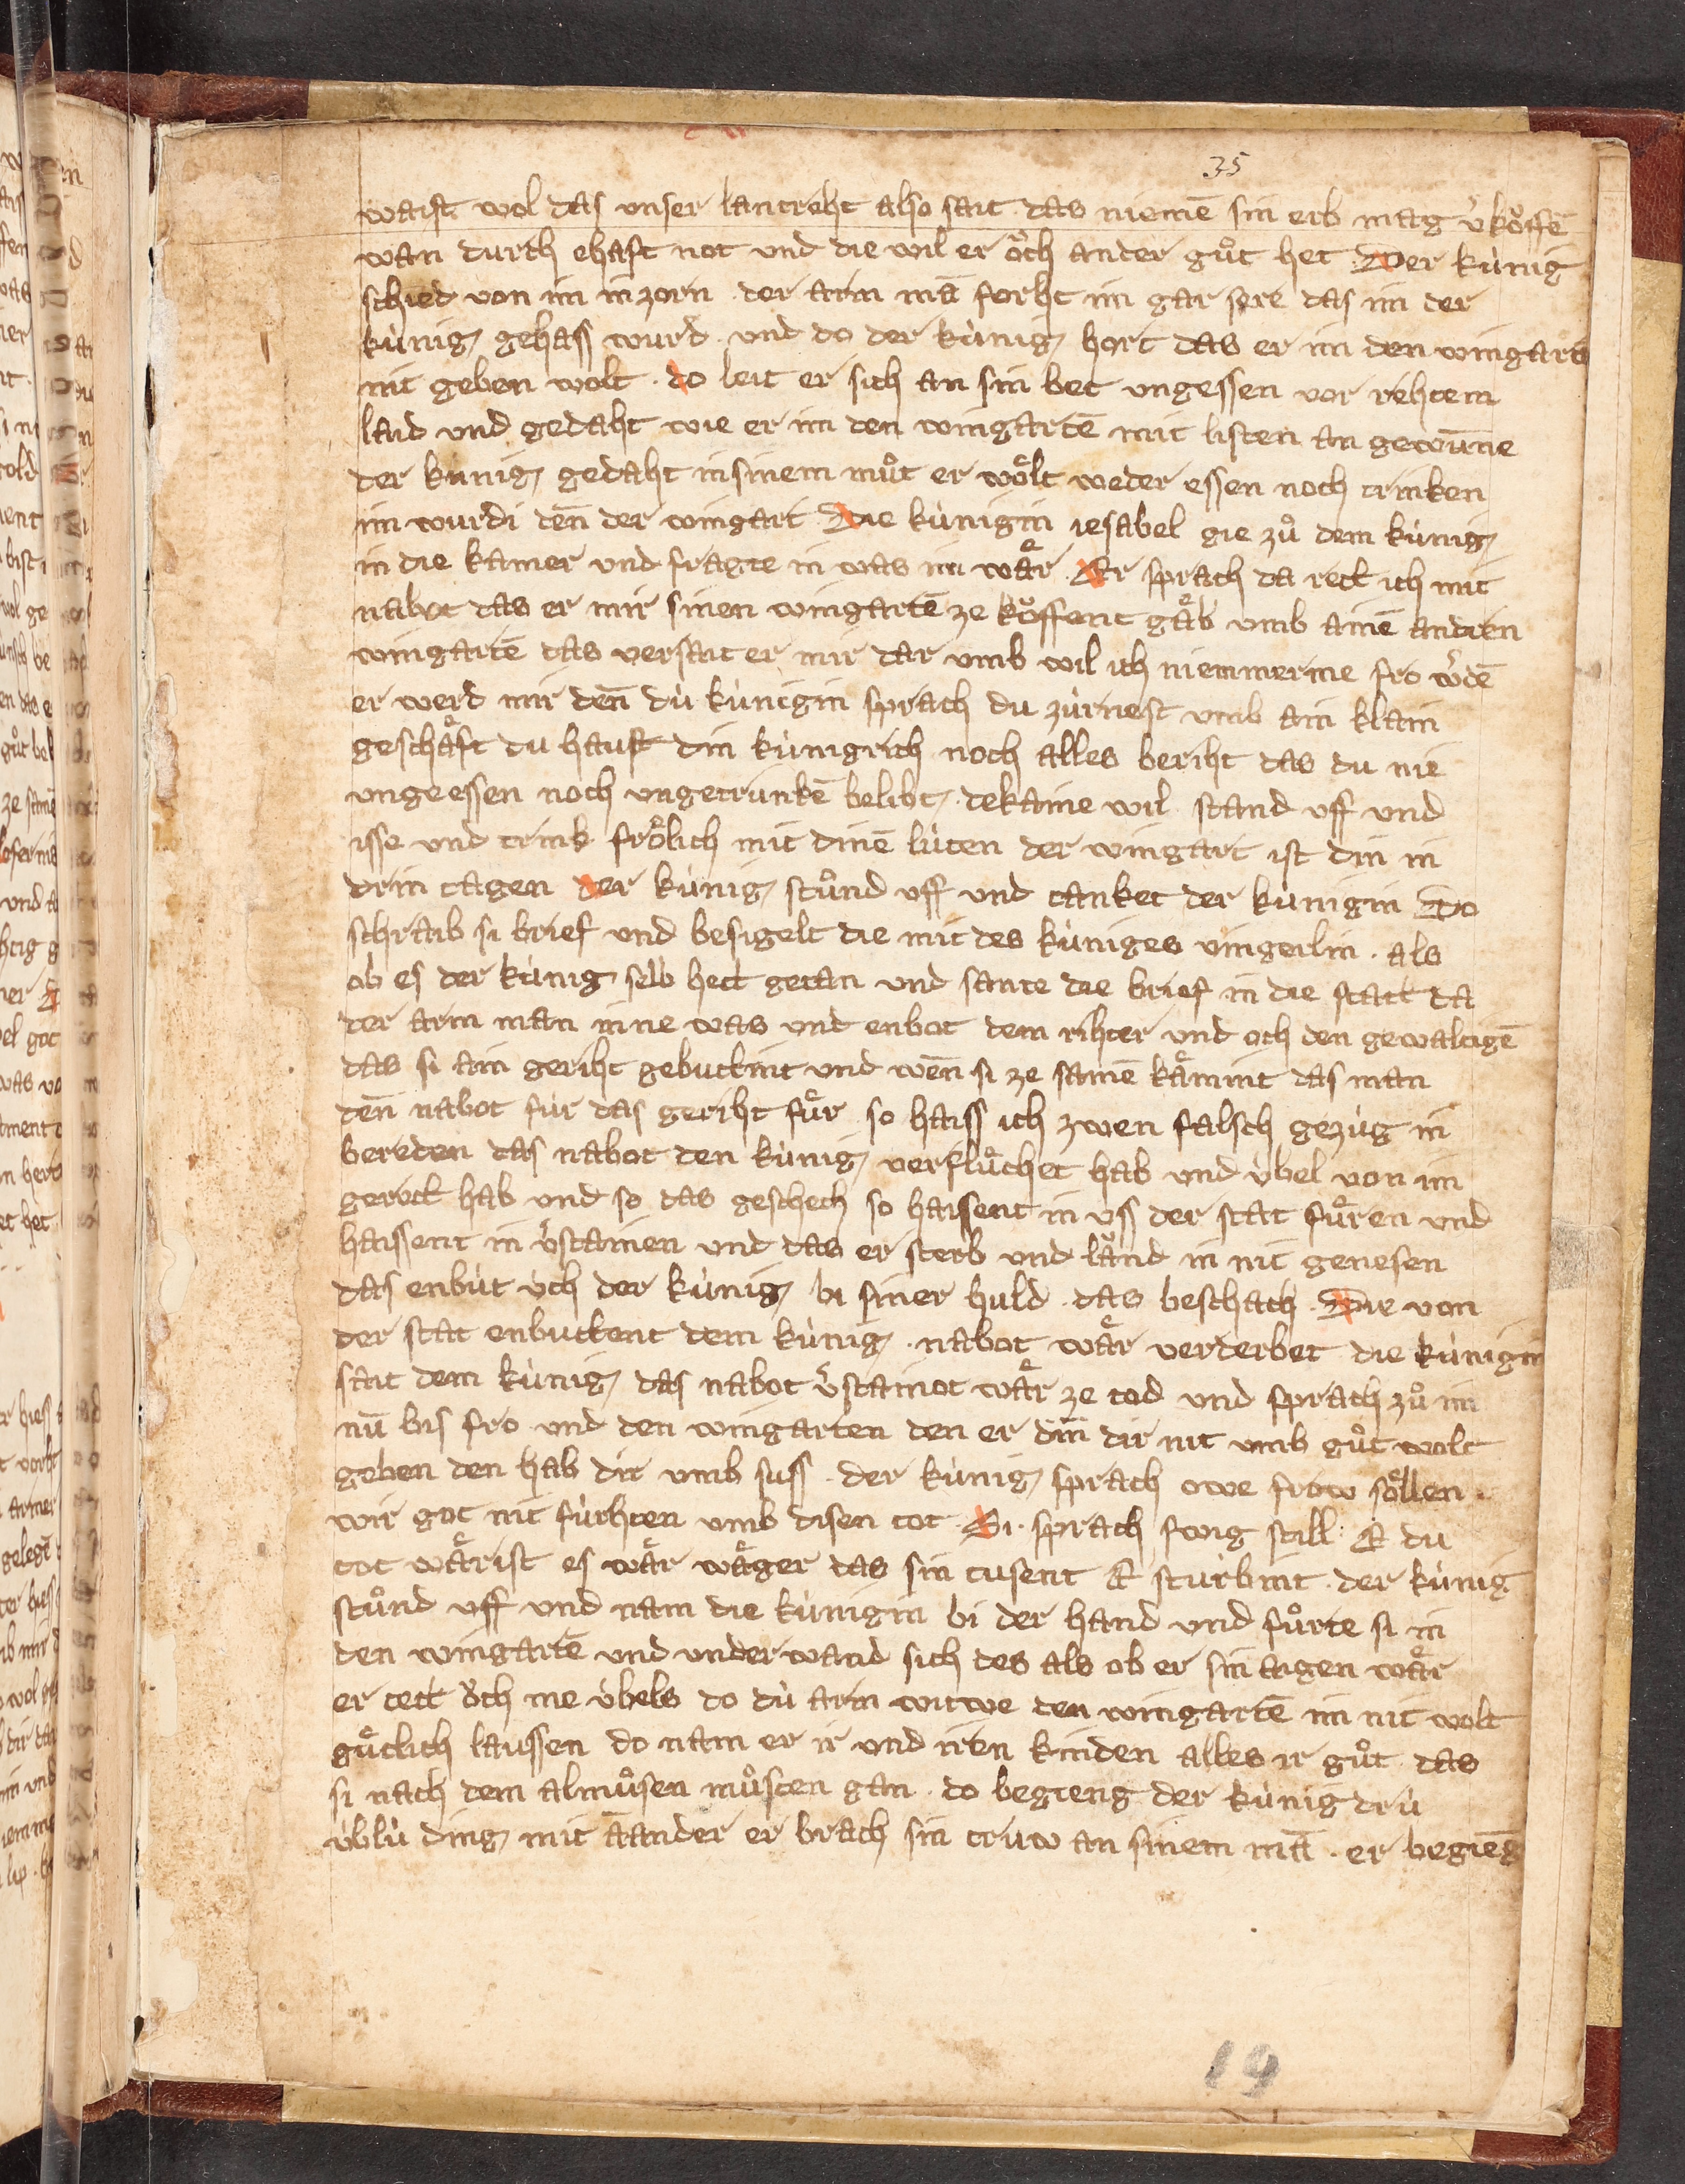 35
waist wol das vnser lantreht also sait das niemē sin erb mag v̓koͤffē
wan durch ehaft not vnd die wil er oͮch ander guͦt het Der kùnig
schied von im in zorn der arm mā forht im gar sere das im der
kùnig gehass wurd vnd do der kùnig hort das er im den wingartē
nit geben wolt · do leit er sich an sin bet vngessen vor rehtem
laid vnd gedaht wie er im den wingartē mit listen an gewūne
der kùnig gedaht in sinem muͦt er woͤlt weder essen noch trinken
im wurdi deñ der wingart Die kùnigin iesabel gie zuͦ dem kùnig
in die kamer vnd fragte in was im waͤr · Er sprach da rett ich mit
nabot das er mir sinen wingartē ze koͤffent gaͤb vmb ainē andren
wingartē das versait er mir dar vmb wil ich niemmerme fro w̓dē
er werd mir deñ dù kùnigin sprach du zùrnest vmb ain klain
geschaͤft du haust din kùnigrich noch alles beriht das du nie
vngeessen noch vngetrunkē belibt · dekaine wil stand vff vnd
isse vnd trink froͤlich mit dinē lùten der wingart ist din in
drin tagen der kùnig stuͦnd vff vnd danket der kùnigin Do
schraib si brief vnd besigelt die mit des kùniges vingerlin · als
ob es der kùnig selb hett getan vnd sante die brief in die statt da
der arm man inne was vnt enbot dem rihter vnd och den gewaltigē
das si ain geriht gebuttint vnd weñ si ze samē kaͤmint das man
deñ nabot fùr das geriht fuͤr so haiss ich zwen falsch gezùg in
bereden das nabot den kùnig verfluͦchet hab vnd ùbel von im
gerett hab vnd so das geschech so haissent in vss der stat fuͤren vnd
haissent in v̓stainen vnt das er sterb vnd laͤnd in nit genesen
das enbùt ùch der kùnig bi siner huld · das beschach · Die von
der stat enbuttent dem kùnig · nabot waͤr verderbet die kùnigin
sait dem kùnig das nabot v̓stainot waͤr ze tod vnd sprach zuͦ im
nū bis fro vnd den wingarten den er din dir nit vmb guͦt wolt
geben den hab dir vmb suss · der kùnig sprach owe frow soͤllen
wir got nit fùrhten vmb disen tot · Si · sprach swig still E du
tot waͤrist es waͤr waͤger das sin tusent E sturbint · der kùnig
stuͦnd vff vnd nam die kùnigin bi der hand vnd fuͦrte si in
den wingartē vnd vnder wand sich des als ob er sin aigen waͤr
er tett oͮch me ùbels do dù arm witwe den wingartē im nit wolt
guͤtlich laussen do nam er ir vnd iren kinden alles ir guͦt das
si nach dem almuͦsen muͦsten gan · do begieng der kùnig drù
ùblù ding mit āander er brach sin truw an sinem mā · er begieng
19